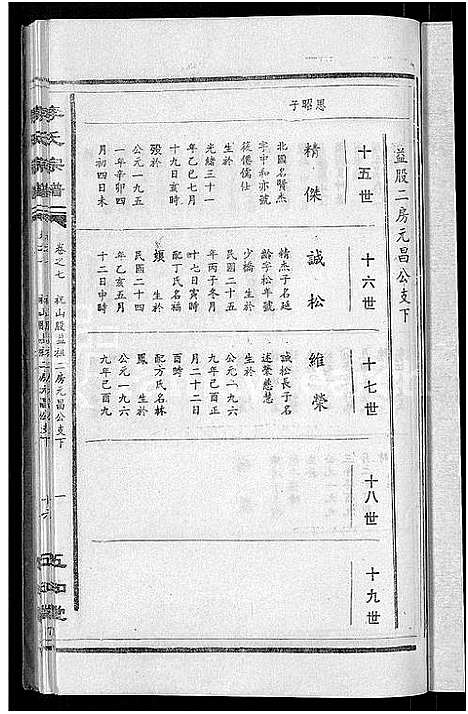 益股二房元昌公支下
十五世
十六世
十七世
十八世
十九世
恩昭子
精傑
北國名賢杰
字中和亦號
筱僊儒仕
生於
光緒三十一
年乙巳七月
十九日亥時
歿於
公元一九五
一年辛卯四
月初四日未
誠松
精杰子名廷
齡字松年號
少橋 生於
民國二十五
年丙子冬月
廿七日寅時
配丁氏名福
頻 生於
民國二十四
年乙亥五月
十二日申時
維榮
誠松長子名
述榮慈慧
生於
公元一九六
九年己酉正
月二十二日
酉時
配方氏名林
鳳 生於
公元一九六
九年己酉九
李氏宗譜
卷之七
祝山股益祖二房元昌公支下